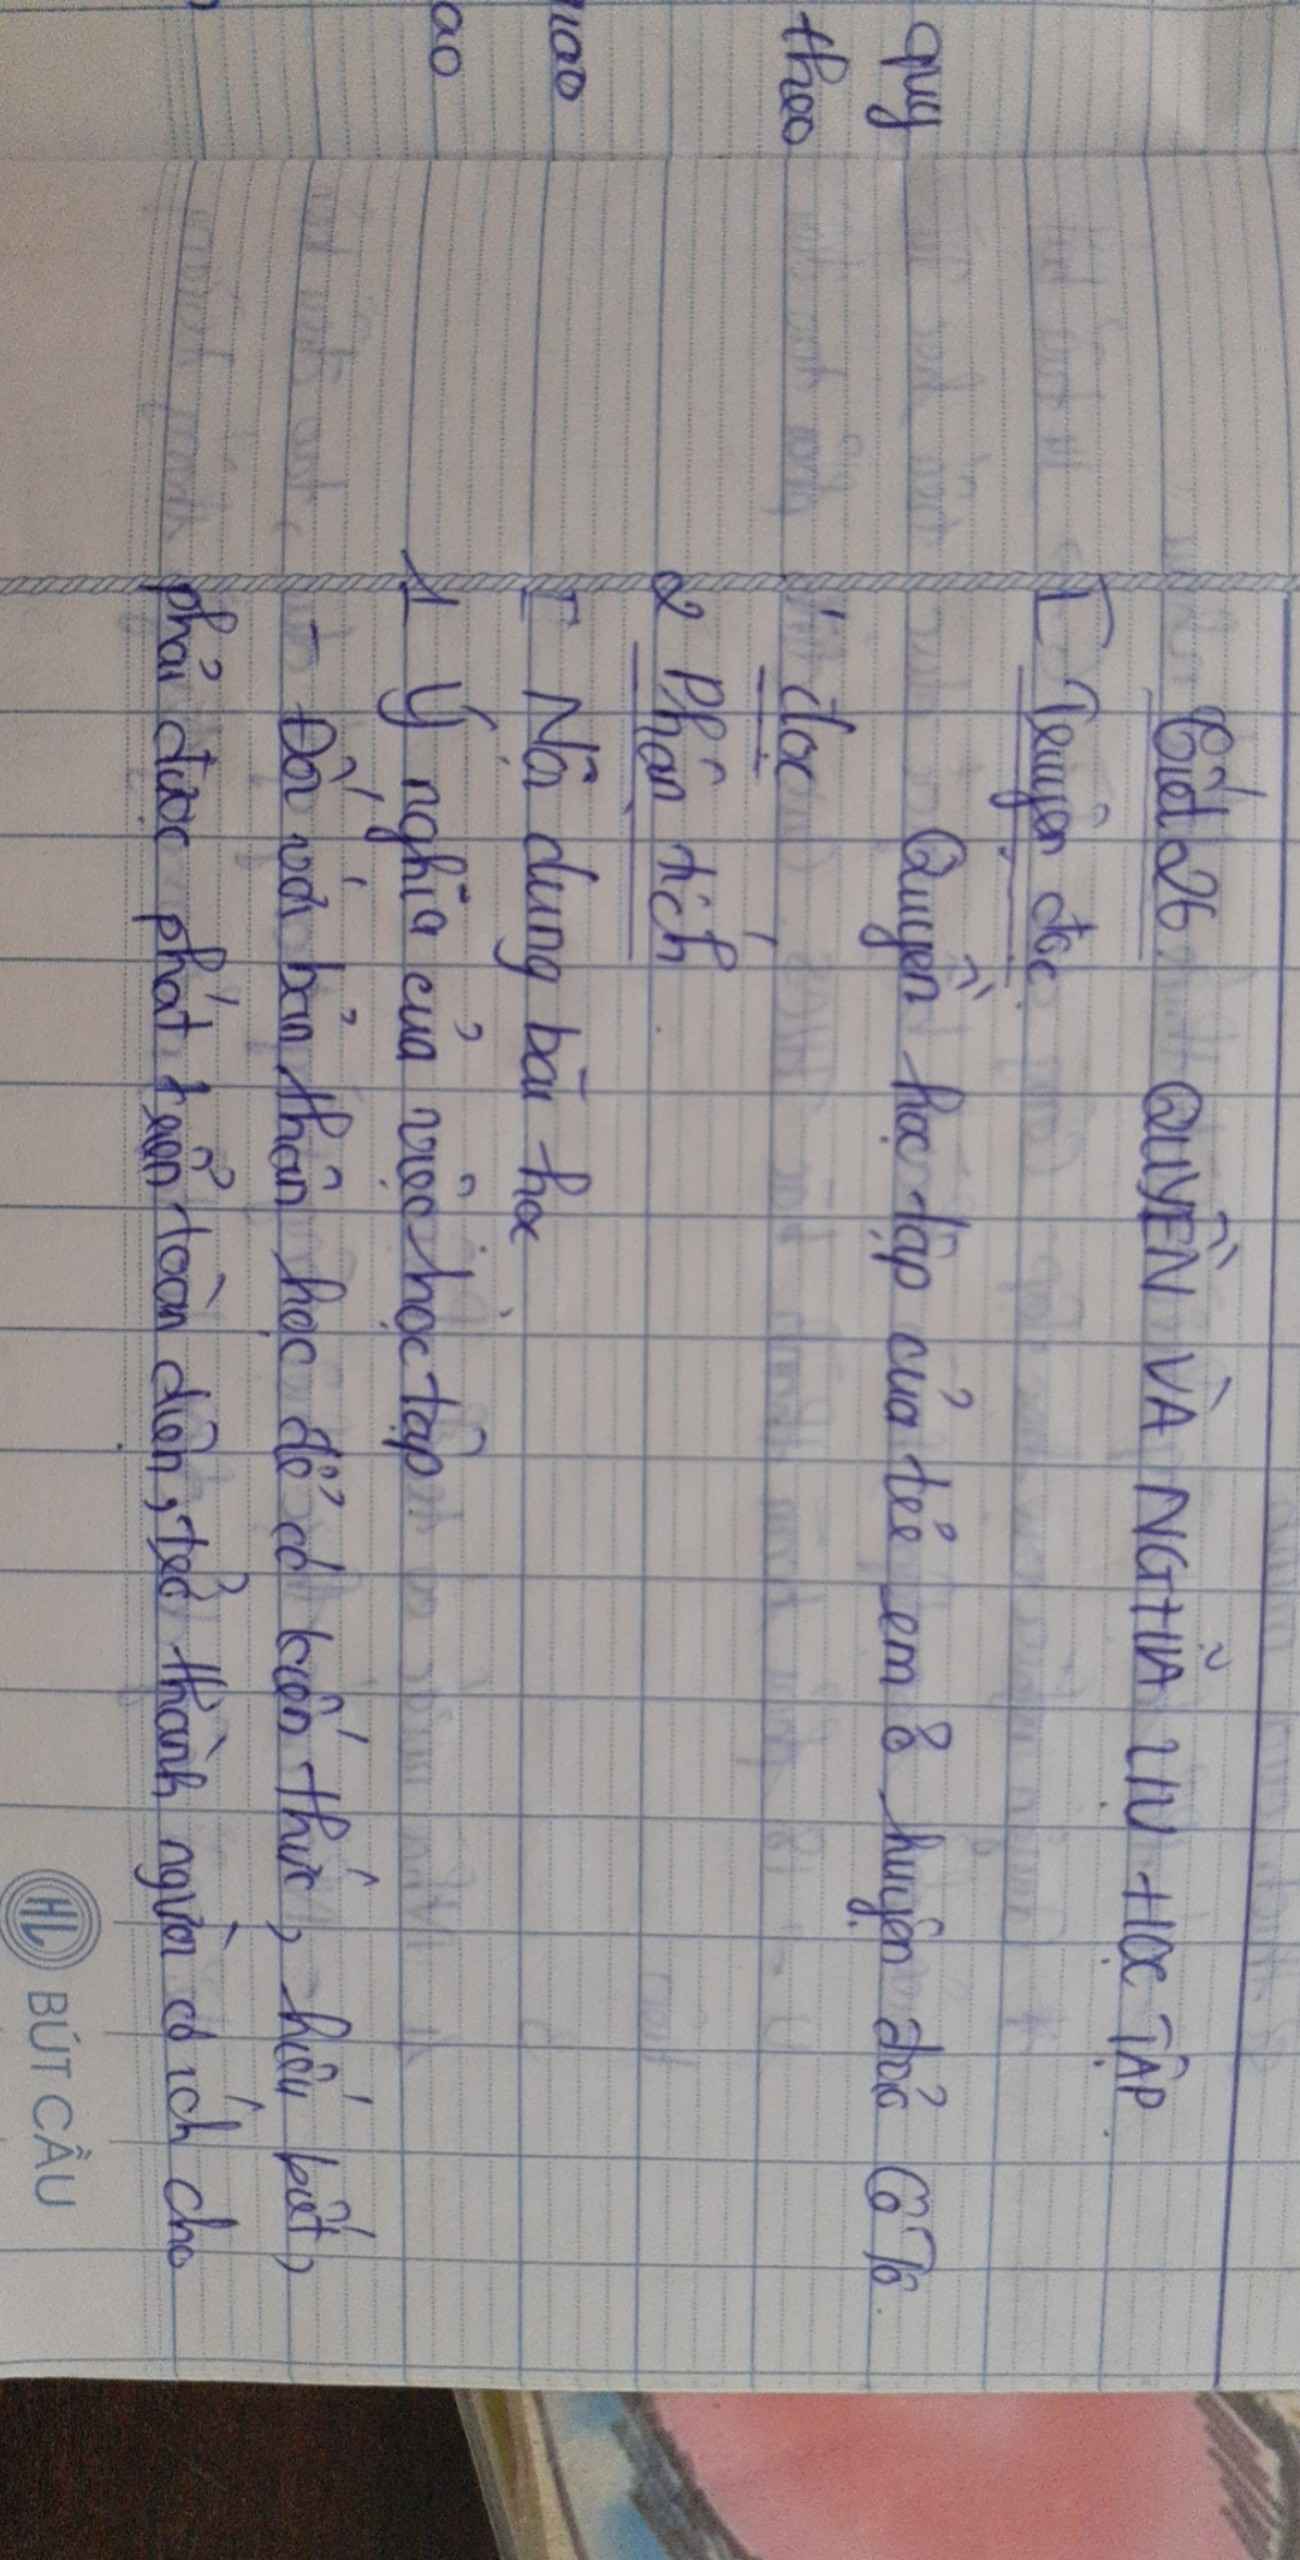 quy
theo
ao
Tiết 26 QUYỀN VÀ NGHĨA VỤ HỌC TẬP
I Truyện đọc
Quyền học tập của trẻ em ở huyện đảo Cô Tô.
1 đọc
2 Phân tích
II Nội dung bài học
1 Ý nghĩa của việc học tập
- Đối với bản thân học để có kiến thức, hiểu biết,
phải được phát triển toàn diện, trở thành người có ích cho
HL BÚT CÂU